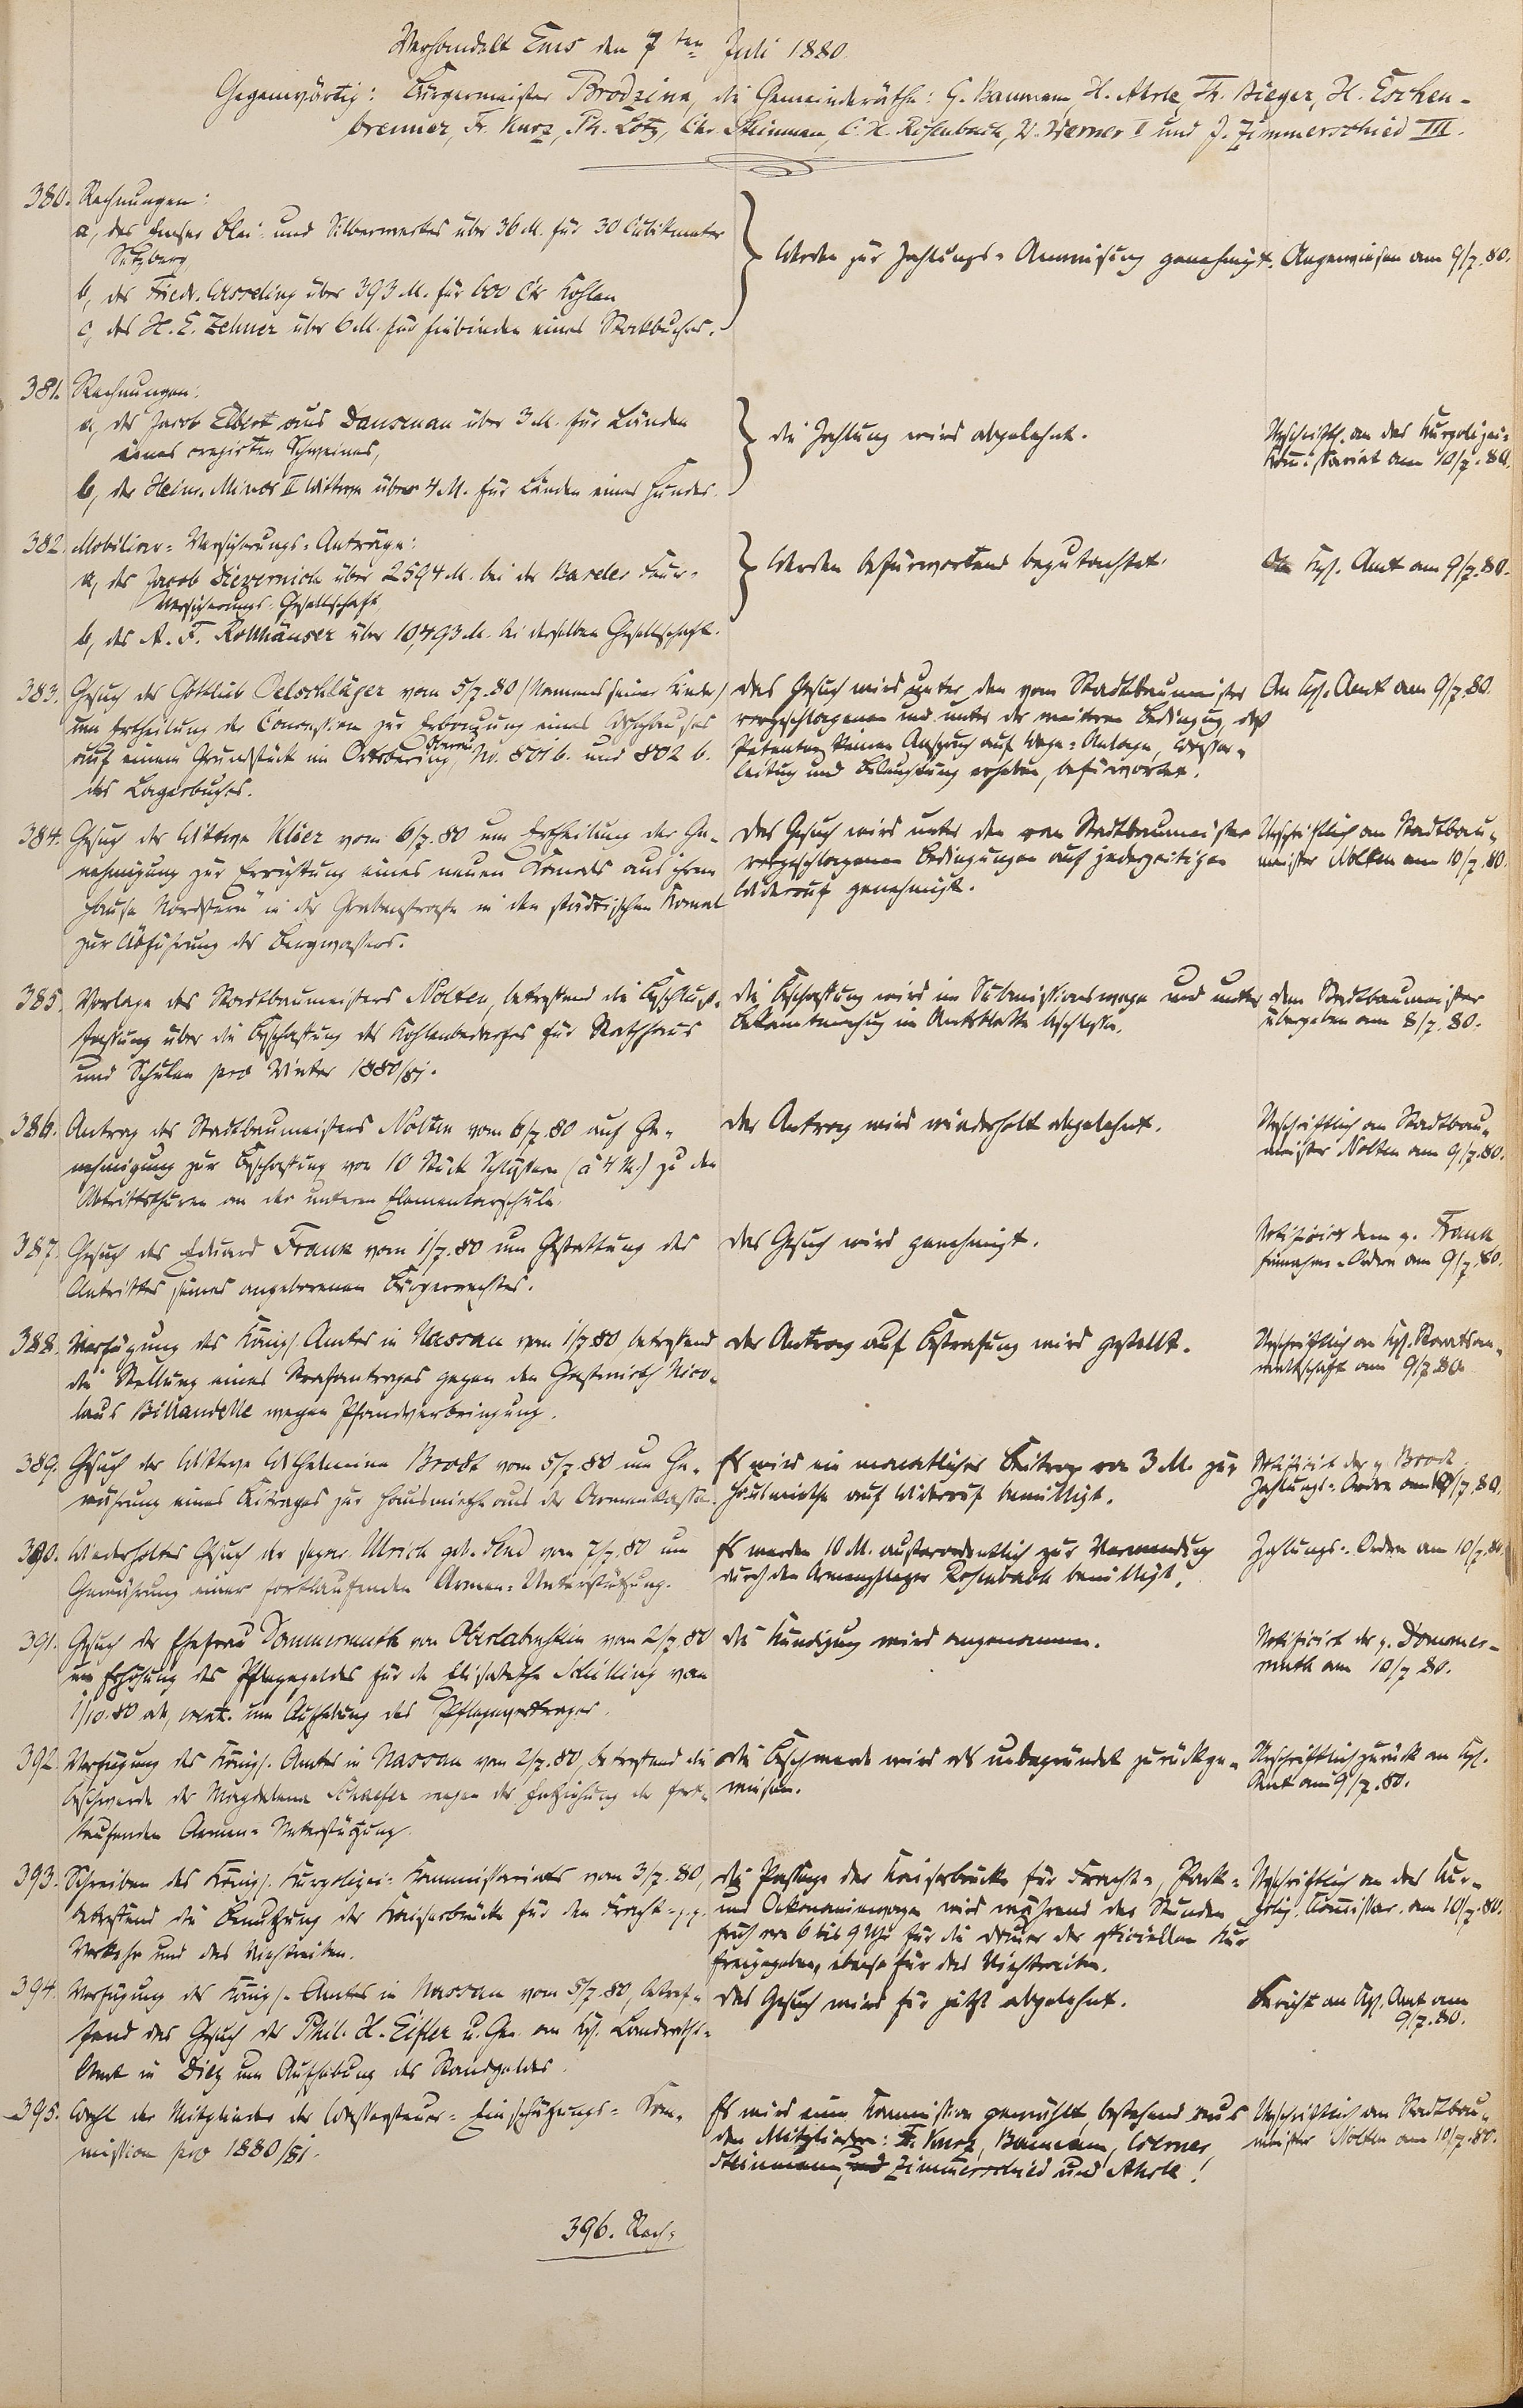 Verhandelt Ems den 7ten Juli 1880.
Gegenwärtig: Bürgermeister Brodzina, die Gemeinderäthe: G. Baumann, H. Ahrle, Th. Bieger, H. Eschen-
brenner, Fr. Kurz, Ph. Lotz, Chr. Steinmann, C. H. Rosenbach, W. Werner I und J. Zimmerschied III.
380. Rechnungen:
a, des Emser Blei- und Silberwerkes über 36 M. für 30 Cubikmeter
Setzberg,
b, des Friedr. Asseling über 393 M. für 600 Ctr Kohlen
c, des H. E. Zehner über 6 M. für Einbinden eines Stockbuches.
Werden zur Zahlungs-Anweisung genehmigt.
Angewiesen am 9/7. 80.
381. Rechnungen:
a, des Jacob Elbert aus Dausenau über 3 M. für Länden
eines crepirten Schweines,
b, der Heinr. Minor II Wittwe über 4 M. für Länden eines Hundes.
die Zahlung wird abgelehnt.
Urschriftl. an das Kurpolizei-
Kommissariat am 10/7. 80.
382. Mobiliar-Versicherungs-Anträge:
a, des Jacob Biezernich über 2594 M. bei der Baseler Feuer-
Versicherungs-Gesellschaft,
b, des A. F. Rollhäuser über 10,493 M. bei derselben Gesellschaft.
Werden befürwortend begutachtet.
An Kgl. Amt am 9/7. 80.
383. Gesuch des Gottlieb Oelschläger vom 5/7. 80 (Namens seiner Kinder)
um Ertheilung der Concession zur Erbauung eines Wohnhauses
auf einem Grundstück im Ortsbering No. 801 b. und 802 b.
des Lagerbuches.
das Gesuch wird unter den vom Stadtbaumeister
vorgeschlagenen und unter der weiteren Bedingung, daß
Petenten keinen Anspruch auf Wege-Anlage, Wasser-
leitung und Beleuchtung erheben, befürwortet.
An Kgl. Amt am 9/7. 80.
384. Gesuch der Wittwe Klöer vom 6/7. 80 um Ertheilung der Ge-
nehmigung zur Errichtung eines neuen Kanals aus ihrem
Hause "Nordstern" in der Grabenstraße in den städtischen Kanal
zur Abführung des Bergwassers.
das Gesuch wird unter den vom Stadtbaumeister
vorgeschlagenen Bedingungen auf jederzeitigen
Widerruf genehmigt.
Urschriftlich an Stadtbau-
meister Nolten am 10/7. 80.
385. Vorlage des Stadtbaumeisters Nolten, betreffend die Beschluß-
fassung über die Beschaffung des Kohlenbedarfes für Rathhaus
und Schulen pro Winter 1880/81.
die Beschaffung wird im Submissionswege und unter
Bekanntmachung im Amtsblatte beschlossen.
dem Stadtbaumeister
übergeben am 8/7. 80.
386. Antrag des Stadtbaumeisters Nolten vom 6/7. 80 auf Ge-
nehmigung zur Beschaffung von 10 Stück Schlössern (á 4 M.) zu den
Abtrittsthüren an der unteren Elementarschule.
der Antrag wird wiederholt abgelehnt.
Urschriftlich an Stadtbau-
meister Nolten am 9/7. 80.
387. Gesuch des Eduard Frank vom 1/7. 80 um Gestattung des
Antrittes seines angeborenen Bürgerrechtes.
das Gesuch wird genehmigt.
Notificirt dem p. Frank
Einnahme-Ordre am 9/7. 80.
388. Verfügung des Königl. Amtes in Nassau vom 1/7. 80 betreffend
die Stellung eines Strafantrages gegen den Gastwirth Nico-
laus Billaudelle wegen Pfandverbringung.
der Antrag auf Bestrafung wird gestellt.
Urschriftlich an Kgl. Staatsan-
waltschaft am 9/7. 80.
389. Gesuch der Wittwe Wilhelmine Brodt vom 5/7. 80 um Ge-
währung eines Beitrages zur Hausmiethe aus der Armenkasse.
Es wird ein monatlicher Beitrag von 3 M. zur
Hausmiethe auf Widerruf bewilligt.
Notificirt der p. Brodt
Zahlungs-Ordre am 10/7. 80.
390. Wiederholtes Gesuch der separ. Ulrich geb. vom 7/7. 80 um
Gewährung einer fortlaufenden Armen-Unterstützung.
Es werden 10 M. außerordentlich zur Verwendung
durch den Armenpfleger Rosenbach bewilligt.
Zahlungs-Ordre am 10/7. 80.
391. Gesuch der Ehefrau Dommermuth von Oberlahnstein vom 2/7. 80
um Erhöhung des Pflegegeldes für die Elisabethe Schilling vom
1/10. 80 ab, event. um Aufhebung des Pflegevertrages.
die Kündigung wird angenommen.
Notificirt der p. Dommer-
muth am 10/7. 80.
392. Verfügung des Königl. Amtes in Nassau vom 2/7. 80, betreffend die
Beschwerde der Magdalena Schaefer wegen der Entziehung der fort-
laufenden Armen-Unterstützung.
die Beschwerde wird als unbegründet zurückge-
wiesen.
Urschriftlich zurück an Kgl.
Amt am 9/7. 80.
393. Schreiben des Königl. Kurpolizei-Kommissariats vom 3/7. 80,
betreffend die Benutzung der Kaiserbrücke für den Fracht- p. p.
Verkehr und das Viehtreiben.
die Passage der Kaiserbrücke für Fracht-, Pack-
und Oekonomiewagen wird während der Stunden
früh von 6 bis 9 Uhr für die Dauer der officiellen Kur
freigegeben, ebenso für das Viehtreiben.
Urschriftlich an das Kur-
poliz. Kommissar. am 10/7. 80.
394. Verfügung des Königl. Amtes in Nassau vom 5/7. 80, betref-
fend das Gesuch des Phil. H. Eisler u. Gen. am Kgl. Landraths-
Amt in Diez um Aufhebung des Standgeldes.
das Gesuch wird für jetzt abgelehnt.
Bericht an Kgl. Amt am
9/7. 80.
395. Wahl der Mitglieder der Wassersteuer-Einschätzungs-Kom-
mission pro 1880/81.
Es wird eine Kommission gewählt, bestehend aus
den Mitgliedern: F. Kurz, Baumann, Werner,
Steinmann, und Zimmerschied und Ahrle!
Urschriftlich an Stadtbau-
meister Nolten am 10/7. 80.
396. Rech-